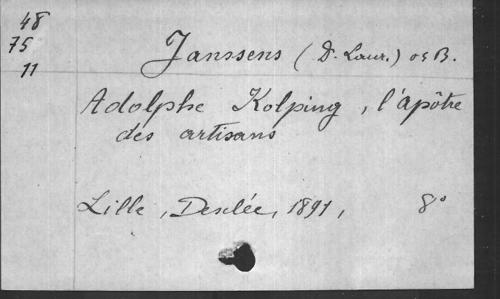 48
75
11
Janssens (D. Laur.) OSB.
Adolphe Kolping, l'apôtre
des artisans
Lille, Desclée, 1891, 8°